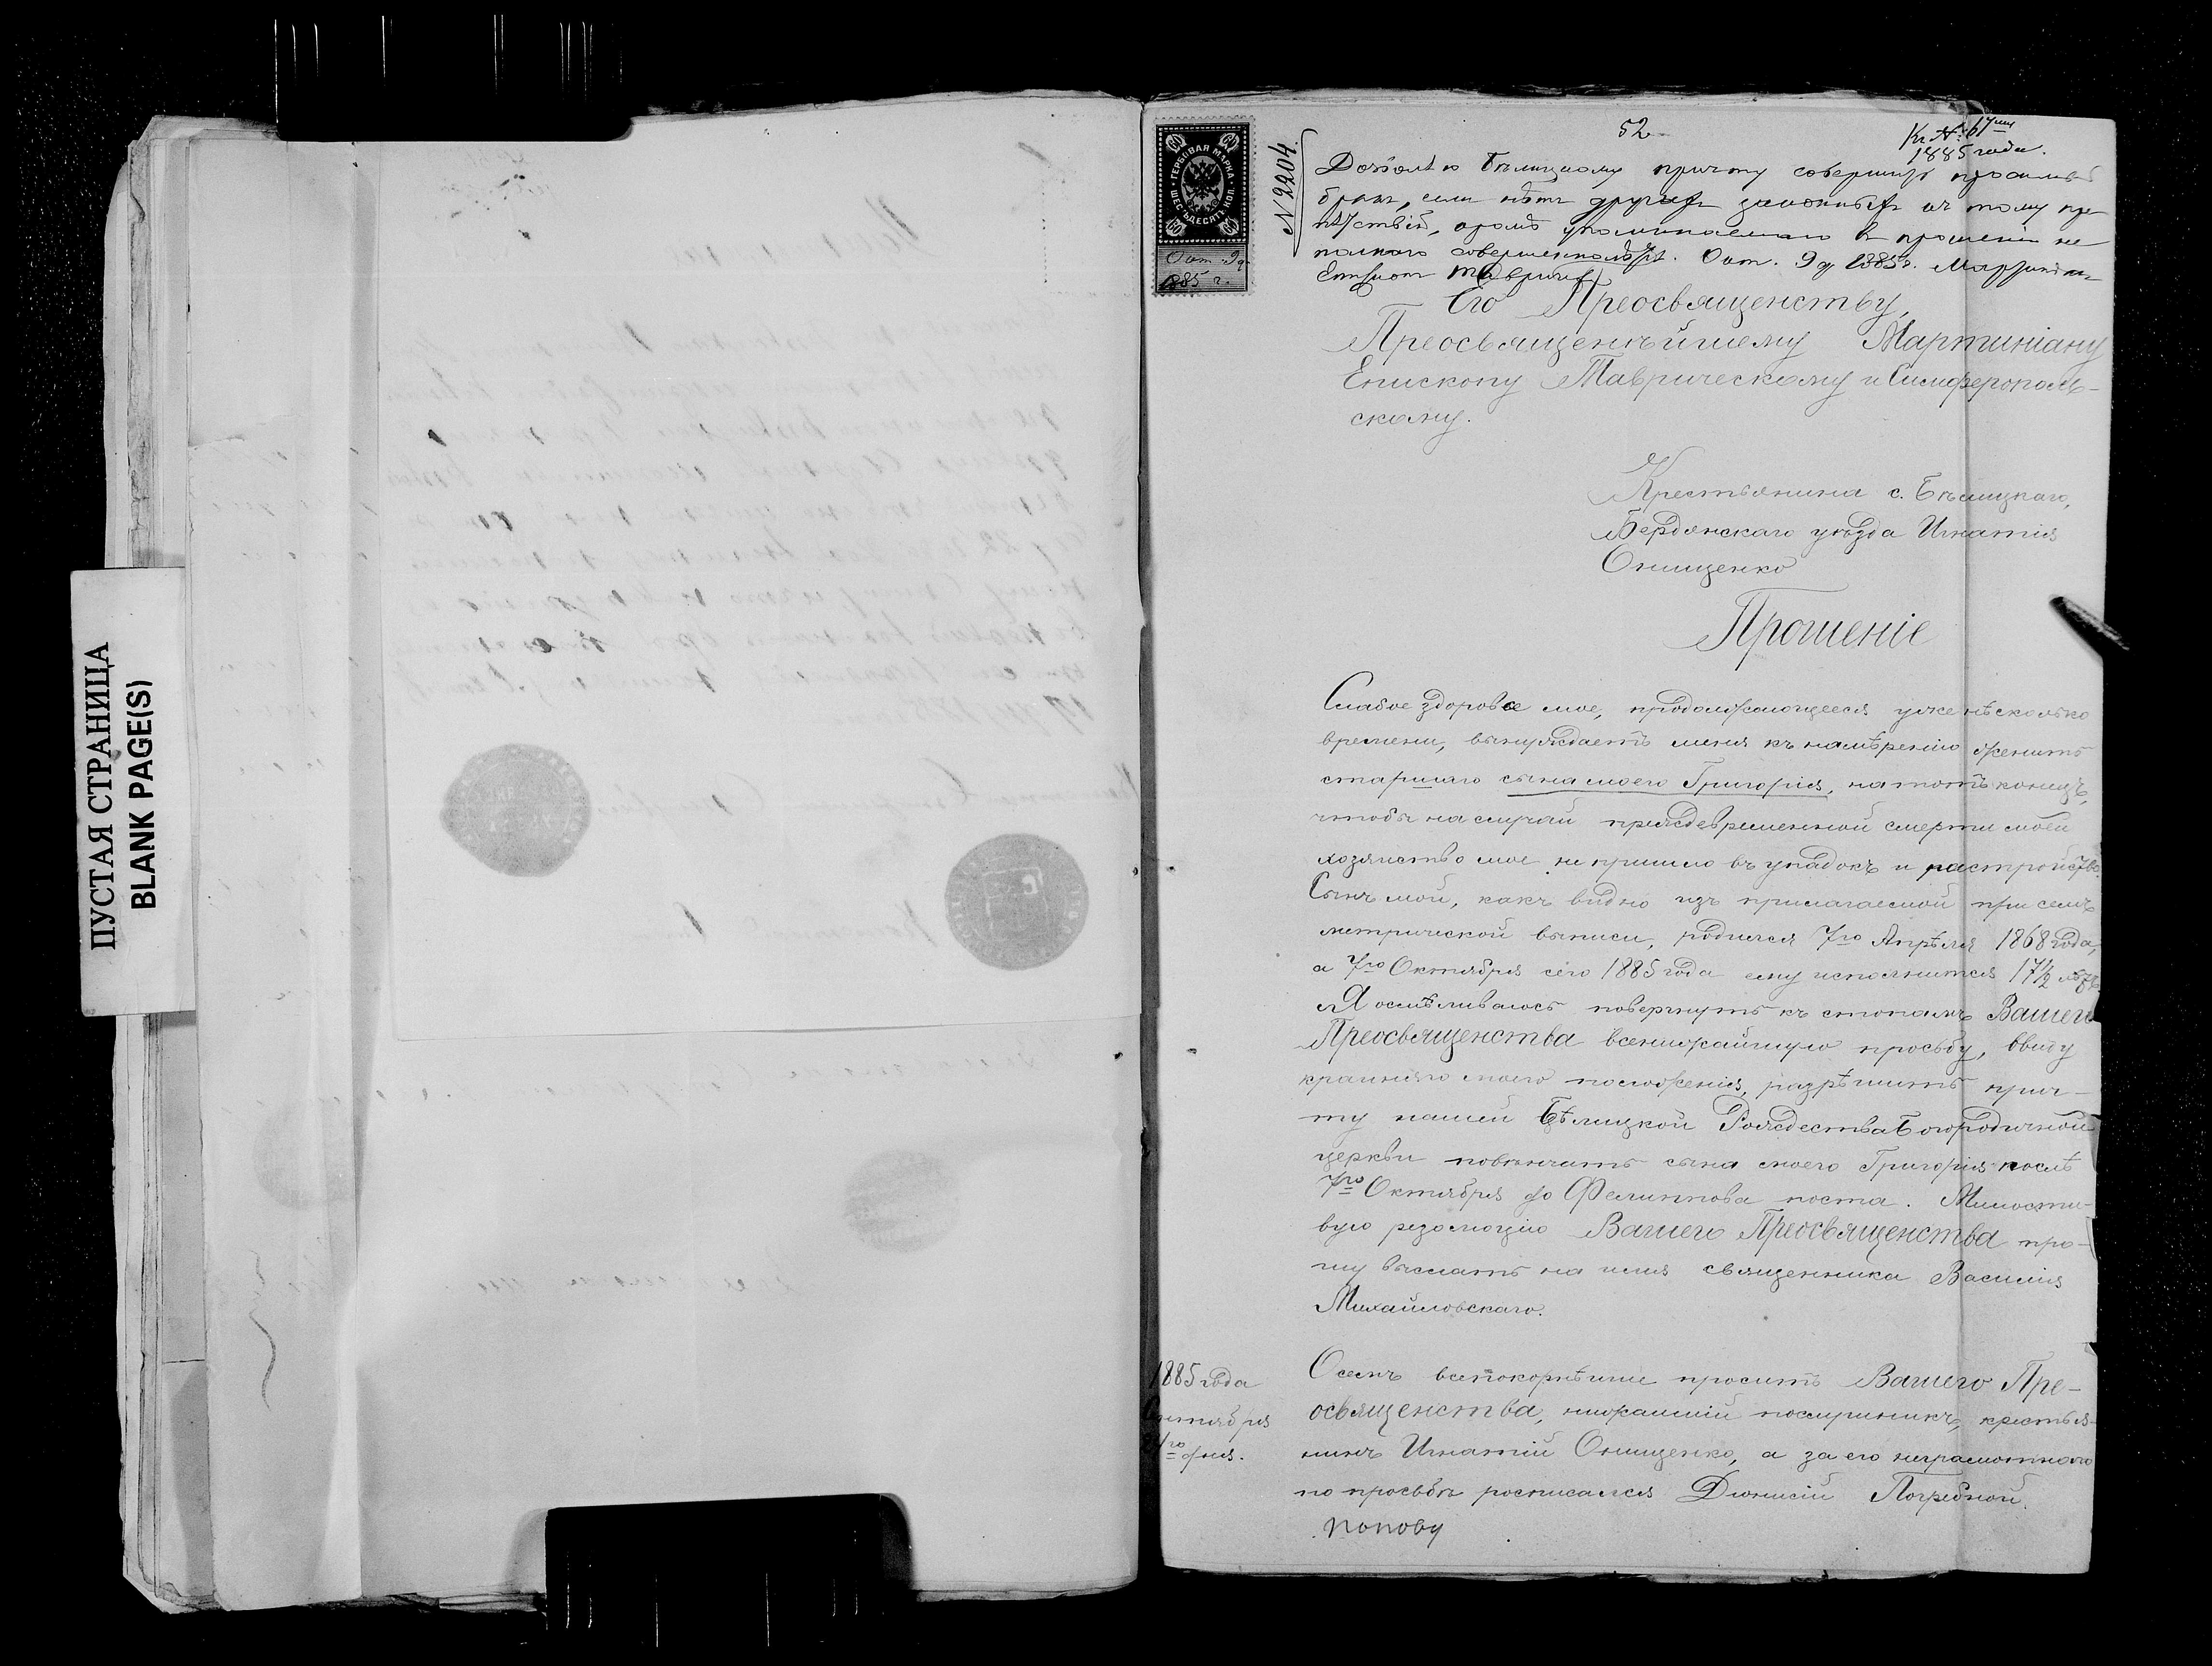 ПУСТАЯ СТРАНИЦА
BLANK PAGE(S)
ГЕРБОВАЯ МАРКА
ШЕСТЬДЕСЯТЪ КОП.
60
Окт. 9 д.
1885 г.
№ 2204.
52
Къ № 67
1885 года.
Дозволяю Бѣлицкому причту совершить просимый
бракъ, если нѣтъ другихъ законныхъ къ тому пре
пятствій, кромѣ упоминаемаго въ прошеніи не
полнаго совершеннолѣтія. Окт. 9 д 1885 г. Мартиніанъ
Епископ Таврич
Его Преосвященству,
Преосвященнѣйшему Мартиніану
Епископу Таврическому и Симферополь-
скому.
Крестьянина с. Бѣлицкаго,
Бердянскаго уѣзда Игнатія
Онищенко
Прошеніе
Слабое здоровье мое, продолжающееся уже нѣсколько
времени, вынуждаетъ меня къ намѣренію женить
старшаго сына моего Григорія, на тотъ конецъ,
чтобы на случай преждевременной смерти моей
хозяйство мое не пришло въ упадокъ и растройство.
Сынъ мой, какъ видно изъ прилагаемой при семъ
метрической выписи, родился 7го Апрѣля 1868 года,
а 7го Октября сего 1885 года ему исполнится 17½ лѣтъ.
Я осмѣливаюсь повергнуть къ стопамъ Вашего
Преосвященства всенижайшую просьбу, ввиду
крайняго моего положенія, разрѣшить прич-
ту нашей Бѣлицкой Рождества Богородичной
церкви повѣнчать сына моего Григорія послѣ
7го Октября до Филиппова поста. Милости-
вую резолюцію Вашего Преосвященства про-
шу выслать на имя священника Василія
Михайловскаго.
1885 года
Октября
го дня.
О семъ всепокорнѣйше проситъ Вашего Пре-
освященства, нижайшій послушникъ, крестья-
нинъ Игнатій Онищенко, а за его неграмотнаго
по просьбѣ росписался Діонисій Погребной.
Попову